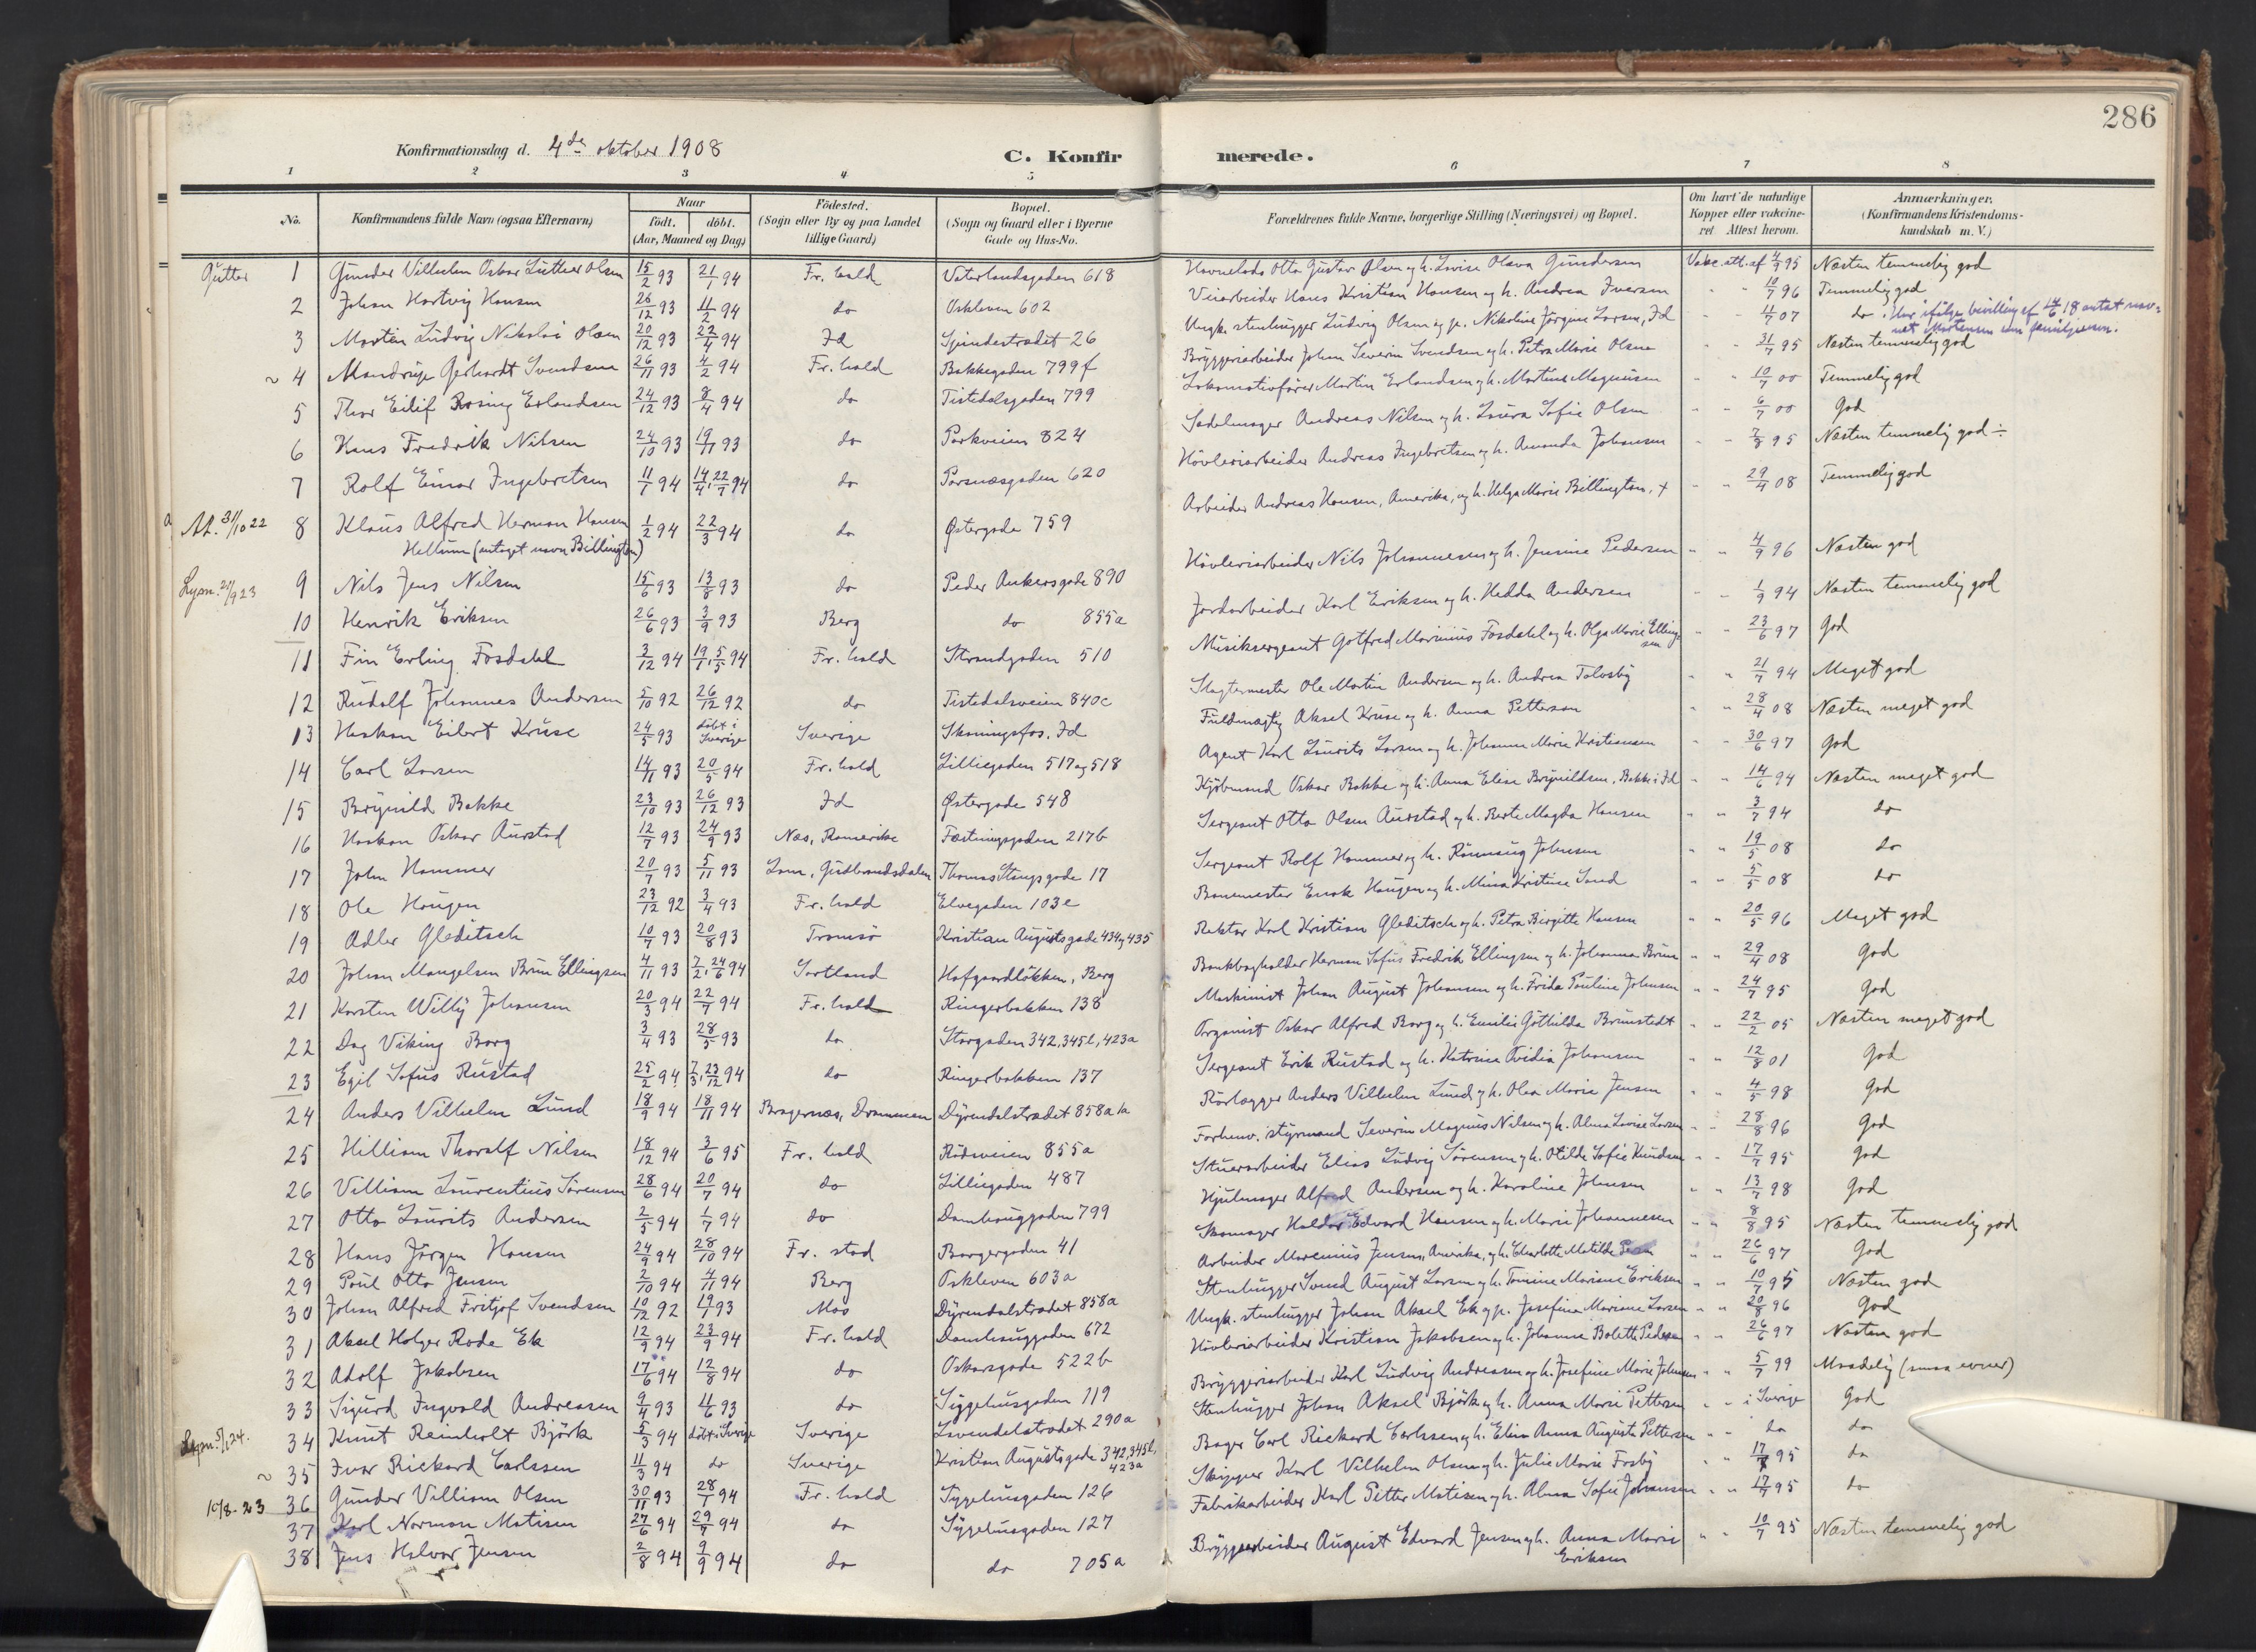 286
Konfirmationsdag d. 4de oktober 1908
C. Konfirmerede.
1 2 3 4 5 6 7 8
No. | Konfirmandens fulde Navn (ogsaa Efternavn) | Naar födt. döbt. (Aar, Maaned og Dag) | Födested. (Sogn eller By og paa Landet tillige Gaard) | Bopæl. (Sogn og Gaard eller i Byerne Gade og Hus-No. | Forældrenes fulde Navne, borgerlige Stilling (Næringsvei) og Bopæl. | Om havt de naturlige Kopper eller vakcineret Attest herom. | Anmærkninger. (Konfirmandens Kristendomskundskab m. V.)
Gutter 1 Gunder Vilhelm Oskar Luther Olsen 15/2 93 21/1 94 Fr.hald Vaterlandsgaden 618 Havnelods Otto Gustav Olsen og h. Lovise Olava Gundersen Vakc.att. af 4/9 95 Næsten temmelig god
2 Johan Hartvig Hansen 26/12 93 11/2 94 do Oskleven 602 Veiarbeider Hans Kristian Hansen og h. Andrea Iversen " " 10/7 96 Temmelig god
3 Martin Ludvig Nikolai Olsen 20/12 93 22/4 94 Id Spindestrædet 26 Ungk. stenhugger Ludvig Olsen og p. Nikoline Jørgine Larsen, Id " " 11/7 07 do. Har ifølge bevilling af 14/6 18 antat navnet Martensen som familjenavn.
~ 4 Mandrup Gerhardt Svendsen 26/11 93 4/2 94 Fr.hald Bakkegaden 799f Bryggeriarbeider Johan Severin Svendsen og h. Petra Marie Olsen " " 31/7 95 Næsten temmelig god
5 Thor Eilif Rosing Erlandsen 24/12 93 8/4 94 do Tistedalsgaden 799 Lokomotivfører Martin Erlandsen og h. Martine Magnusen " " 10/7 00 Temmelig god
6 Hans Fredrik Nilsen 24/10 93 19/11 93 do Parkveien 824 Sadelmager Andreas Nilsen og h. Laura Sofie Olsen " " 6/7 00 God
7 Rolf Einar Ingebretsen 11/1 94 14/4, 22/7 94 do Porsnæsgaden 620 Høvleriarbeider Andreas Ingebretsen og h. Amanda Johansen " " 7/8 95 Næsten temmelig god ÷
Att. 31/10 22 8 Klaus Alfred Herman Hansen 1/2 94 22/3 94 do Østergade 759 Arbeider Andreas Hansen, Amerika, og h. Helga Marie Billington, + " " 29/4 08 Temmelig god
Hellum (antaget navn Billington)
Lysn. 21/9 23 9 Nils Jens Nilsen 15/6 93 13/8 93 do Peder Ankersgade 890 Høvleriarbeider Nils Johannesen og h. Jensine Pedersen " " 4/9 96 Næsten god
10 Henrik Eriksen 26/6 93 3/9 93 Berg do 855a Jordarbeider Karl Eriksen og h. Hedda Andersen " " 1/9 94 Næsten temmelig god
11 Fin Erling Fosdahl 3/12 94 19/1, 5/5 94 Fr.hald Strandgaden 510 Musiksergeant Gotfred Marinius Fosdahl og h. Olga Marie Ellingsen " " 23/6 97 God
12 Rudolf Johannes Andersen 5/10 92 26/12 92 do Tistedalsveien 840c Slagtermester Ole Martin Andersen og h. Andrea Tolosby " " 21/7 94 Meget god
13 Haakon Eilert Kruse 24/5 93 döbt i Sverige Sverige Skonningsfos, Id Fuldmægtig Aksel Kruse og h. Anna Petterson " " 28/4 08 Næsten meget god
14 Carl Larsen 14/11 93 20/5 94 Fr.hald Lilliegaden 517 og 518 Agent Karl Laurits Larsen og h. Johanne Marie Kristiansen " " 30/6 97 God
15 Brynild Bakke 23/10 93 26/12 93 Id Østergade 548 Kjøbmand Oskar Bakke og h. Anna Elise Brynildsen, Bakke i Id " " 14/6 94 Næsten meget god
16 Haakon Oskar Aurstad 12/7 93 24/9 93 Næs, Romerike Fæstningsgaden 217b Sergeant Otto Olsen Aurstad og h. Berte Magda Hansen " " 3/7 94 do
17 John Hammer 20/7 93 5/11 93 Lom, Gudbrandsdalen Thomas Stangsgade 17 Sergeant Rolf Hammer og h. Rønnaug Johnsen " " 19/5 08 do
18 Ole Haugen 23/12 92 3/4 93 Fr.hald Elvegaden 103e Banemester Enok Haugen og h. Mina Kristine Sand " " 5/5 08 do
19 Adler Gleditsch 10/7 93 20/8 93 Tromsø Kristian Augustsgade 434 og 435 Rektor Karl Kristian Gleditsch og h. Petra Birgitte Hansen " " 20/5 96 Meget god
20 Johan Mangelsen Brun Ellingsen 4/11 93 7/2, 24/6 94 Sortland Hofgaardløkken, Berg Bankbogholder Herman Sofus Fredrik Ellingsen og h. Johanna Brun " " 29/4 08 God
21 Karsten Willy Johansen 20/3 94 22/7 94 Fr.hald Ringerbakken 138 Maskinist Johan August Johansen og h. Frida Pauline Johnsen " " 24/7 95 God
22 Dag Viking Borg 3/4 93 28/5 93 do Storgaden 342, 345b, 423a Organist Oskar Alfred Borg og h. Emilie Gothilda Brunstedt " " 22/2 05 Næsten meget god
23 Egil Sofus Rustad 25/2 94 7/3, 23/12 94 do Ringerbakken 137 Sergeant Erik Rustad og h. Katrine Ovidia Johansen " " 12/8 01 God
24 Anders Vilhelm Lund 18/9 94 18/11 94 Bragernæs, Drammen Dyrendalstrædet 858a b Rørlægger Anders Vilhelm Lund og h. Olea Marie Jensen " " 4/5 98 God
25 Hilliam Thoralf Nilsen 18/12 94 3/6 95 Fr.hald Rødsveien 855a Forhenv. styrmand Severin Magnus Nilsen og h. Alma Lovise Larsen " " 28/8 96 God
26 Villiam Laurentius Sørensen 28/6 94 20/7 94 do Lilliegaden 487 Stuerarbeider Elias Ludvig Sørensen og h. Otilde Sofie Knudsen " " 17/7 95 God
27 Otto Laurits Andersen 2/5 94 1/7 94 do Damhauggaden 799 Hjulmager Alfred Andersen og h. Karoline Johnsen " " 13/7 98 God
28 Hans Jørgen Hansen 24/9 94 28/10 94 Fr.stad Borgergaden 41 Skomager Haldor Edvard Hansen og h. Marie Johannesen " " 8/8 95 Næsten temmelig god
29 Poul Otto Jensen 2/10 94 4/11 94 Berg Oskleven 603a Arbeider Marenius Jensen, Amerika, og h. Charlotte Matilde " " 26/6 97 God
30 Johan Alfred Fritjof Svendsen 10/12 92 19/1 93 Mos Dyrendalstrædet 858a Stenhugger Svend August Larsen og h. Tomine Mariane Eriksen " " 10/7 95 Næsten god
31 Aksel Holger Rode Ek 12/9 94 23/9 94 Fr.hald Damhauggaden 672 Ungk. stenhugger Johan Aksel Ek og p. Josefine Mariane Larsen " " 20/8 96 God
32 Adolf Jakobsen 17/6 94 12/8 94 do Oskarsgade 522b Høvleriarbeider Kristian Jakobsen og h. Johanne Bolette Pedersen " " 26/6 97 Næsten god
33 Sigurd Ingvald Andreassen 9/4 93 11/6 93 do Sygehusgaden 119 Bryggeriarbeider Karl Ludvig Andreassen og h. Josefine Marie Johnsen " " 5/7 99 Maadelig (smaa evner)
Lysn. 5/1 24. 34 Knut Reinholt Björk 5/3 94 döbt i Sverige Sverige Lavendelstrædet 290a Stenhugger Johan Aksel Björk og h. Anna Marie Pettersen " " i Sverige God
~ 35 Ivar Rickard Carlssen 11/3 94 do Sverige Kristian Augustsgade 342, 345b, 423a Bager Carl Rickard Carlssen og h. Elin Anna Augusta Pettersen " " do do
10/8-23 36 Gunder Villiam Olsen 30/11 93 28/1 94 Fr.hald Sygehusgaden 126 Skipper Karl Vilhelm Olsen og h. Julie Marie Fosby " " 17/7 95 do
37 Karl Norman Matisen 27/6 94 29/7 94 do Sygehusgaden 127 Fabrikarbeider Karl Petter Matisen og h. Alma Sofie Johansen " " 17/7 95 do
38 Jens Halvor Jensen 2/8 94 9/9 94 do do 705a Bryggearbeider August Edvard Jensen og h. Anna Marie Eriksen " " 10/7 95 Næsten temmelig god